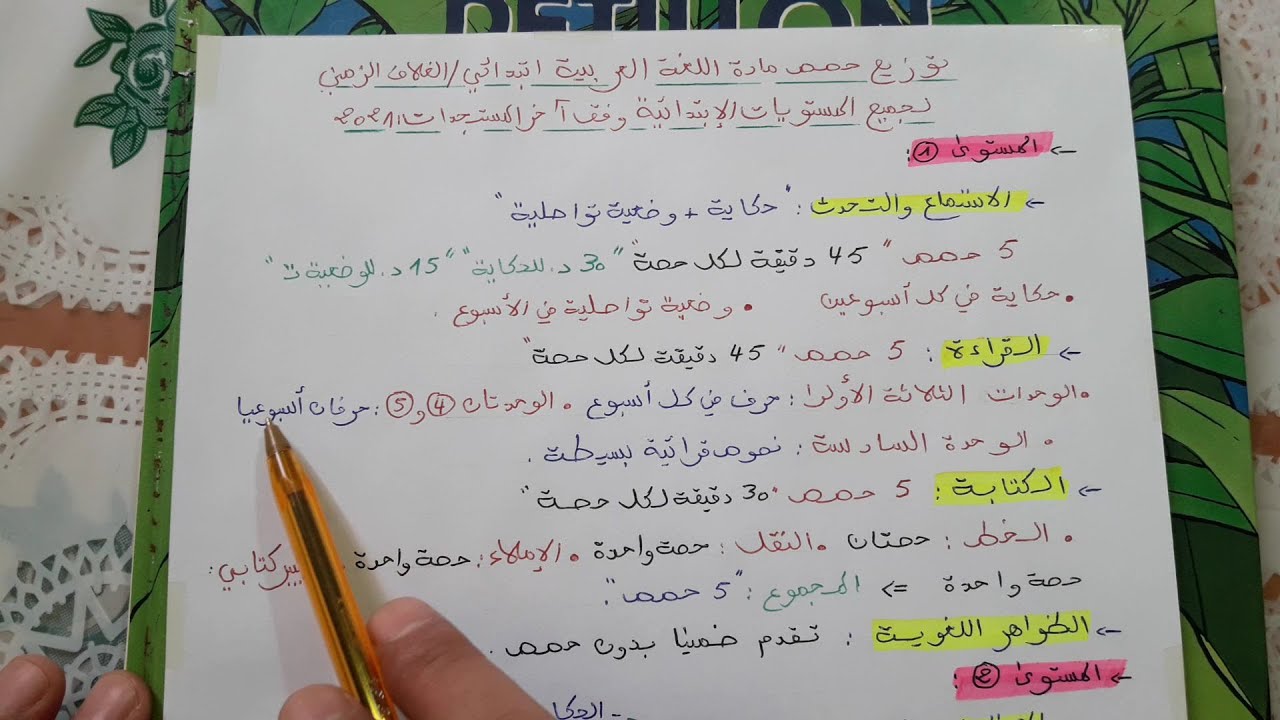 PETILLON
توزيع حصص مادة اللغة العربية ابتدائي/الغلاف الزمني
لجميع المستويات الإبتدائية وفق آخر المستجدات: 2021
← المستوى ①:
← الاستماع والتحدث: "حكاية + وضعية تواصلية"
5 حصص "45 دقيقة لكل حصة" "30 د. للحكاية" "15 د. للوضعية ت"
• حكاية في كل أسبوعين • وضعية تواصلية في الأسبوع.
← القراءة: 5 حصص "45 دقيقة لكل حصة"
• الوحدات الثلاثة الأولى: حرف في كل أسبوع • الوحدتان ④ و⑤: حرفان أسبوعيا
• الوحدة السادسة: نصوص قرائية بسيطة.
← الكتابة: 5 حصص "30 دقيقة لكل حصة"
• الخط: حصتان • النقل: حصة واحدة • الإملاء: حصة واحدة • كتابي:
حصة واحدة => المجموع: "5 حصص".
← الظواهر اللغوية: تقدم ضمنيا بدون حصص.
← المستوى ②: